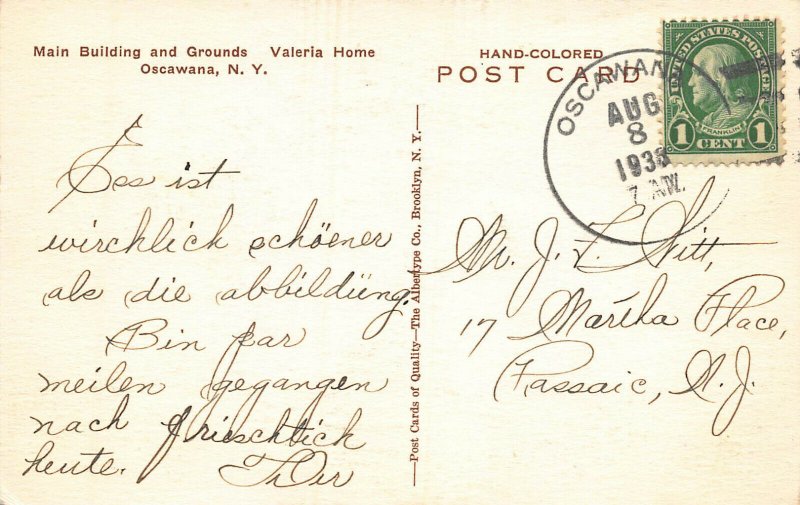 Main Building and Grounds Valeria Home
Oscawana, N. Y.
Ees ist
wirchlich schöener
als die abbildüng.
Bin par
meilen gegangen
nach frieschtick
heute.
—Post Cards of Quality—The Albertype Co., Brooklyn, N. Y.—
HAND-COLORED
POST CARD
OSCAWANA
AUG
8
1933
7 AM.
UNITED STATES POSTAGE
FRANKLIN
1 CENT 1
Mr. J. L. Witt,
17 Martha Place,
Passaic, N. J.